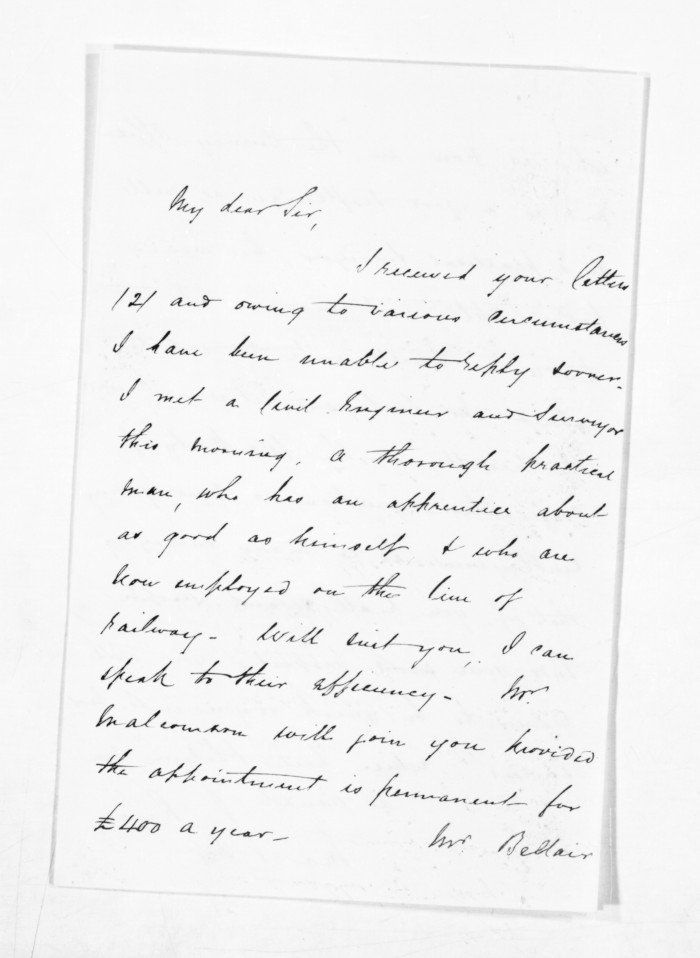 My dear Sir,
I received your letters
(2) and owing to various circumstances
I have been unable to reply sooner.
I met a Civil Engineer and Surveyor
this morning, a thorough practical
man, who has an apprentice about
as good as himself & who are
now employed on the line of
railway - Will suit you, I can
speak to their efficiency - Mr.
Malcomson will join you provided
the appointment is permanent for
£400 a year -
Mr. Bellair